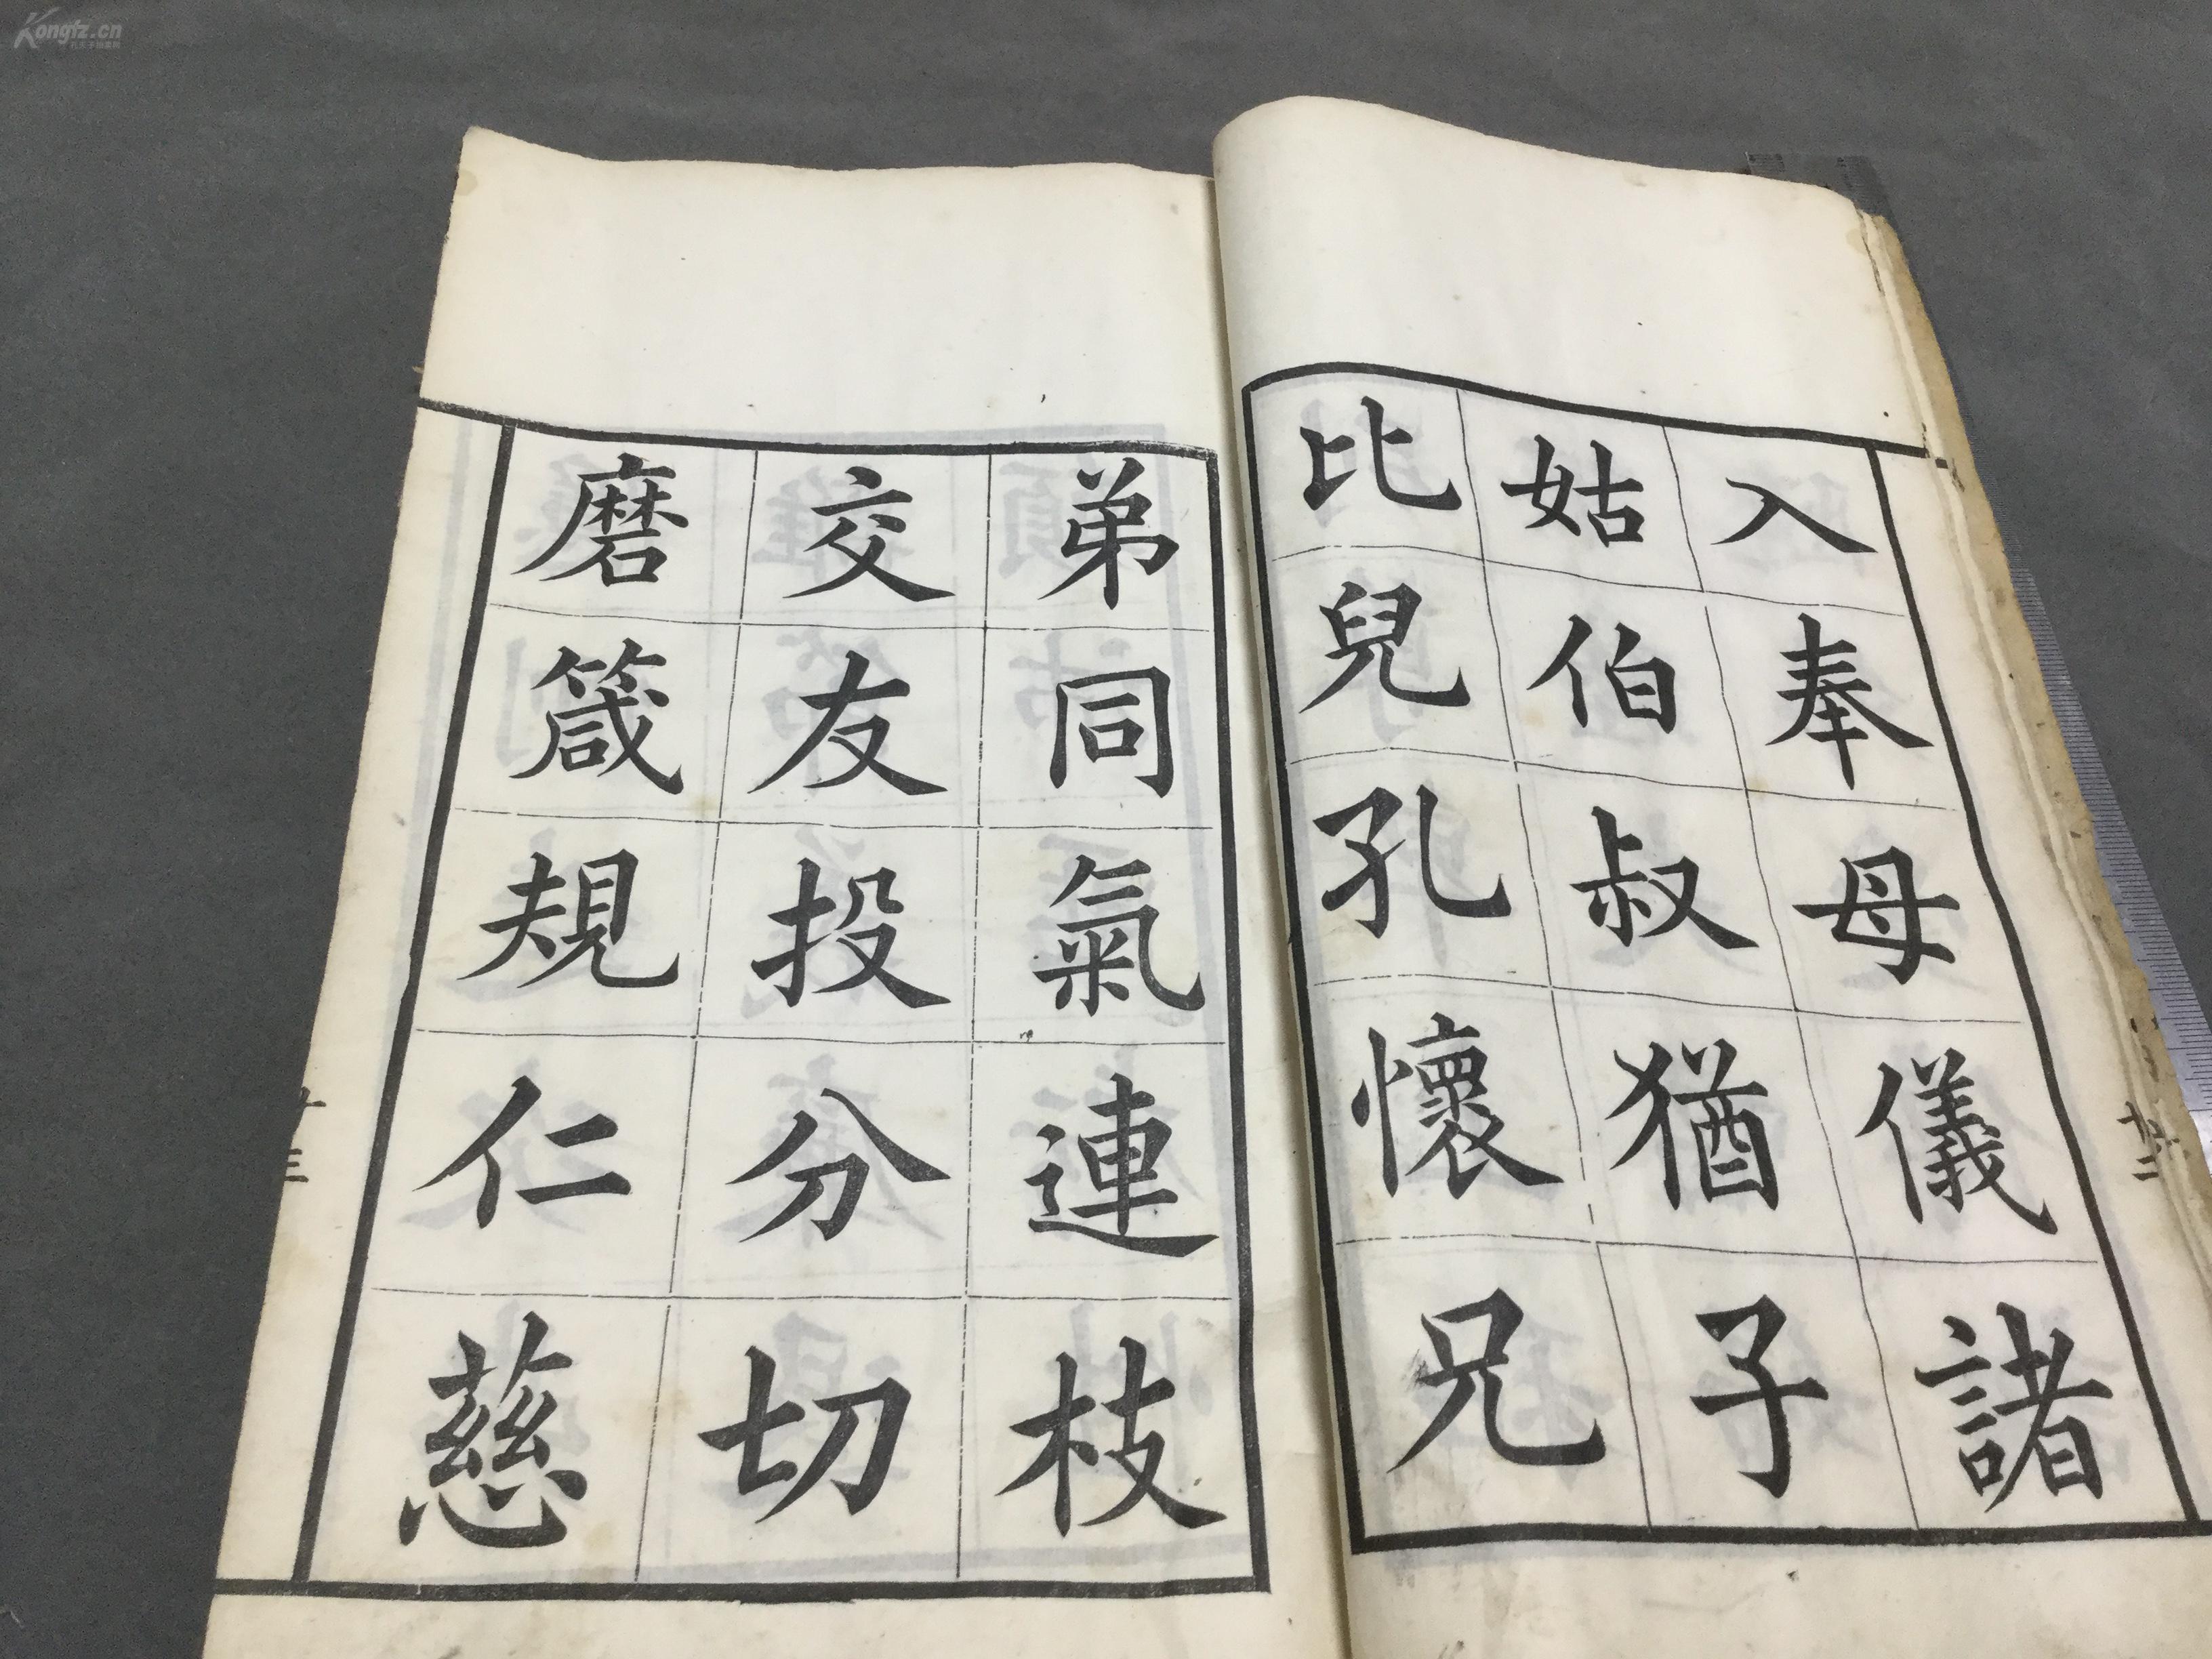 入奉母儀諸
姑伯叔猶子
比兒孔懷兄
弟同氣連枝
交友投分切
磨箴規仁慈
十二
十三
Kongfz.cn